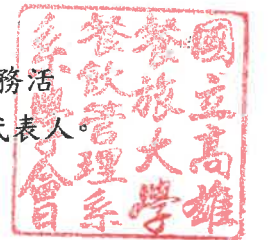 務活
代表人。
國立高雄
餐旅大學
餐飲管理系
系學會